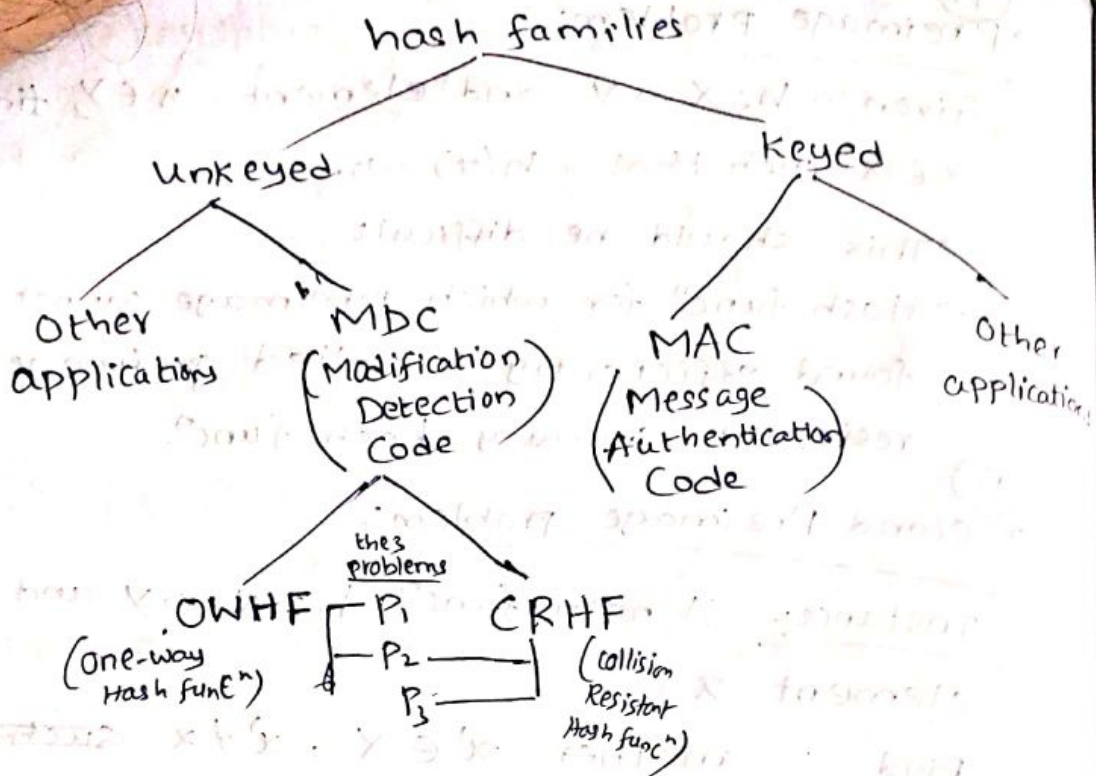 hash families
Unkeyed
Keyed
Other
applications
MDC
(Modification
Detection
Code)
MAC
(Message
Authentication
Code)
Other
application
the 3
problems
OWHF
P1
CRHF
P2
P3
(One-way
Hash funcⁿ)
(Collision
Resistant
Hash funcⁿ)